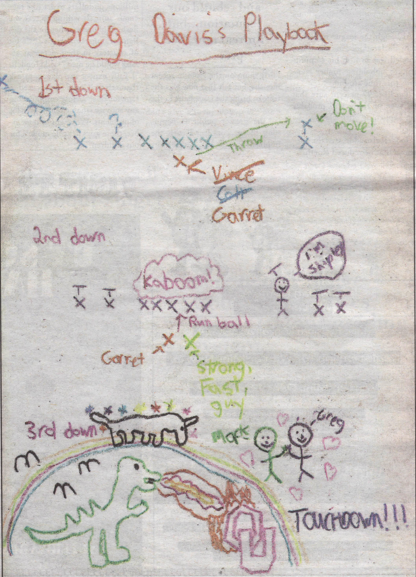 Greg Davis's Playbook
1st down
?
Don't
move!
Throw
Vince
Colt
Garret
2nd down
Kaboom!
I'm
Shipley
Run ball
Garret
strong,
Fast,
guy
3rd down
Mack
Greg
Touchdown!!!